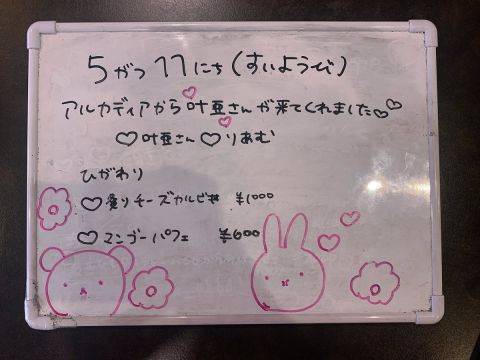 5がつ11にち(すいようび)
アルカディアから叶亜さんが来てくれました♡♡
♡叶亜さん♡りあむ
ひがわり
♡炙りチーズカルビ丼 ¥1000
♡マンゴーパフェ ¥600